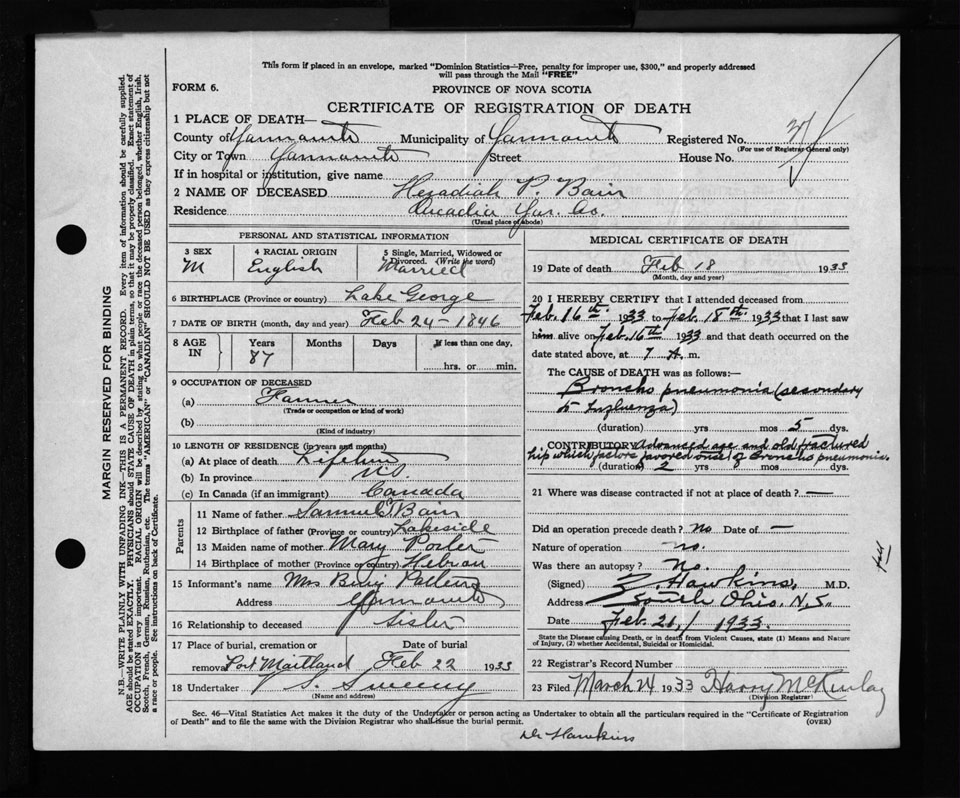 This form if placed in an envelope, marked "Dominion Statistics—Free, penalty for improper use, $300," and properly addressed
will pass through the Mail "FREE"
FORM 6.
PROVINCE OF NOVA SCOTIA
CERTIFICATE OF REGISTRATION OF DEATH
1 PLACE OF DEATH—
County of Yarmouth Municipality of Yarmouth Registered No.
(For use of Registrar General only)
City or Town Yarmouth Street House No.
If in hospital or institution, give name
2 NAME OF DECEASED P. Bain
Residence Arcadia Yar. Co.
(Usual place of abode)
PERSONAL AND STATISTICAL INFORMATION
3 SEX 4 RACIAL ORIGIN 5 Single, Married, Widowed or
Divorced. (Write the word)
M English Married
6 BIRTHPLACE (Province or country) Lake George
7 DATE OF BIRTH (month, day and year) Feb 24 - 1846
8 AGE IN Years Months Days If less than one day,
87 hrs. or min.
9 OCCUPATION OF DECEASED
(a) Farmer
(Trade or occupation or kind of work)
(b)
(Kind of industry)
10 LENGTH OF RESIDENCE (in years and months)
(a) At place of death Lifetime
(b) In province N.S.
(c) In Canada (if an immigrant) Canada
Parents
11 Name of father Samuel Bain
12 Birthplace of father (Province or country) Lakeside
13 Maiden name of mother Mary Porter
14 Birthplace of mother (Province or country) Hebron
15 Informant's name Mrs
Address Yarmouth
16 Relationship to deceased Sister
17 Place of burial, cremation or Date of burial
removal Port Maitland Feb 22 1933
18 Undertaker V. S. Sweeny
(Name and address)
MEDICAL CERTIFICATE OF DEATH
19 Date of death Feb 18 1933
(Month, day and year)
20 I HEREBY CERTIFY that I attended deceased from
Feb. 16th 1933 to Feb. 18th 1933 that I last saw
him alive on Feb. 16th 1933 and that death occurred on the
date stated above, at 7 A. m.
The CAUSE of DEATH was as follows:—
Broncho pneumonia (secondary
to Influenza)
(duration) yrs mos 5 dys.
CONTRIBUTORY Advanced age and old fractured
hip which factors favored onset of broncho pneumonia.
(duration) 2 yrs mos dys.
21 Where was disease contracted if not at place of death? —
Did an operation precede death? No Date of —
Nature of operation no.
Was there an autopsy? No.
(Signed) Z. Hawkins, M.D.
Address South Ohio. N.S.
Date Feb. 21, / 1933.
State the Disease causing Death, or in death from Violent Causes, state (1) Means and Nature
of Injury, (2) whether Accidental, Suicidal or Homicidal.
22 Registrar's Record Number
23 Filed March 24 1933 Harry McKinlay
(Division Registrar)
Sec. 46—Vital Statistics Act makes it the duty of the Undertaker or person acting as Undertaker to obtain all the particulars required in the "Certificate of Registration
of Death" and to file the same with the Division Registrar who shall issue the burial permit. (OVER)
Dr Hawkins
MARGIN RESERVED FOR BINDING
N.B.—WRITE PLAINLY WITH UNFADING INK—THIS IS A PERMANENT RECORD. Every item of information should be carefully supplied.
AGE should be stated EXACTLY. PHYSICIANS should STATE CAUSE OF DEATH in plain terms, so that it may be properly classified. Exact statement of
OCCUPATION is very important. RACIAL ORIGIN will be described by stating to what people or race the deceased person belonged, whether English, Irish,
Scotch, French, German, Russian, Ruthenian, etc. The terms "AMERICAN" or "CANADIAN" SHOULD NOT BE USED as they express citizenship but not
a race or people. See instructions on back of Certificate.